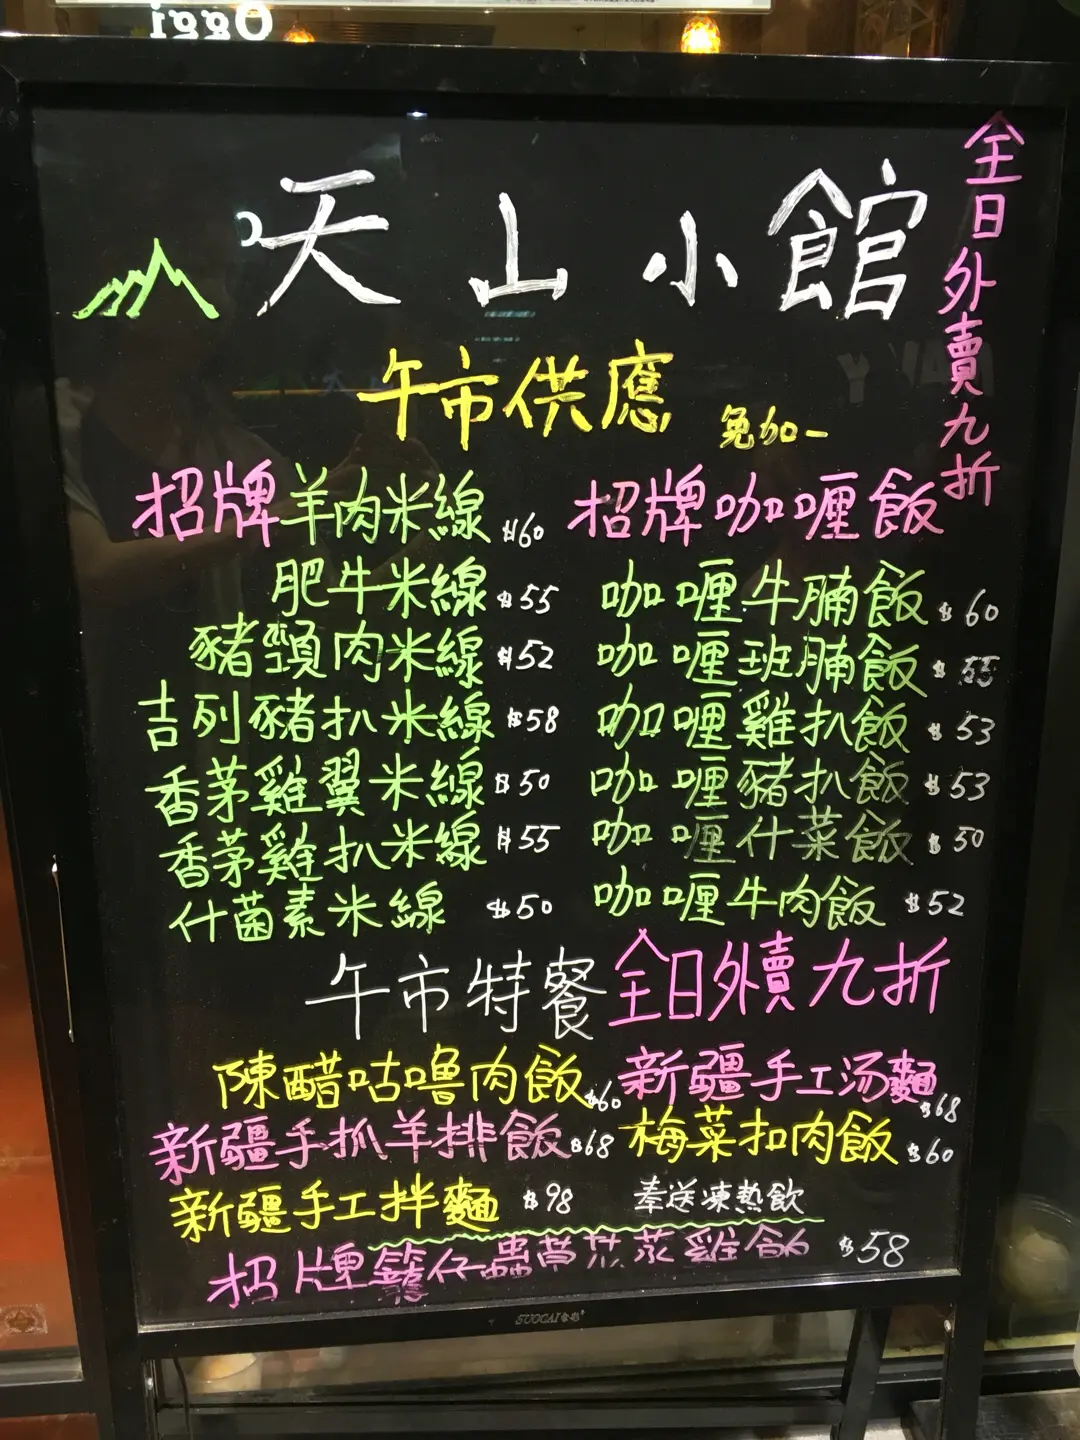 Oggi
天山小館
全日外賣九折
午市供應 免加一
招牌羊肉米線 $60
肥牛米線 $55
豬頸肉米線 $52
吉列豬扒米線 $58
香茅雞翼米線 $50
香茅雞扒米線 $55
什菌素米線 $50
招牌咖喱飯
咖喱牛腩飯 $60
咖喱班腩飯 $55
咖喱雞扒飯 $53
咖喱豬扒飯 $53
咖喱什菜飯 $50
咖喱牛肉飯 $52
午市特餐 全日外賣九折
陳醋咕嚕肉飯 $60 新疆手工汤麵 $68
新疆手抓羊排飯 $68 梅菜扣肉飯 $60
新疆手工拌麵 $98 奉送凍熱飲
招牌籠仔蟲草花蒸雞飯 $58
SUOCAI